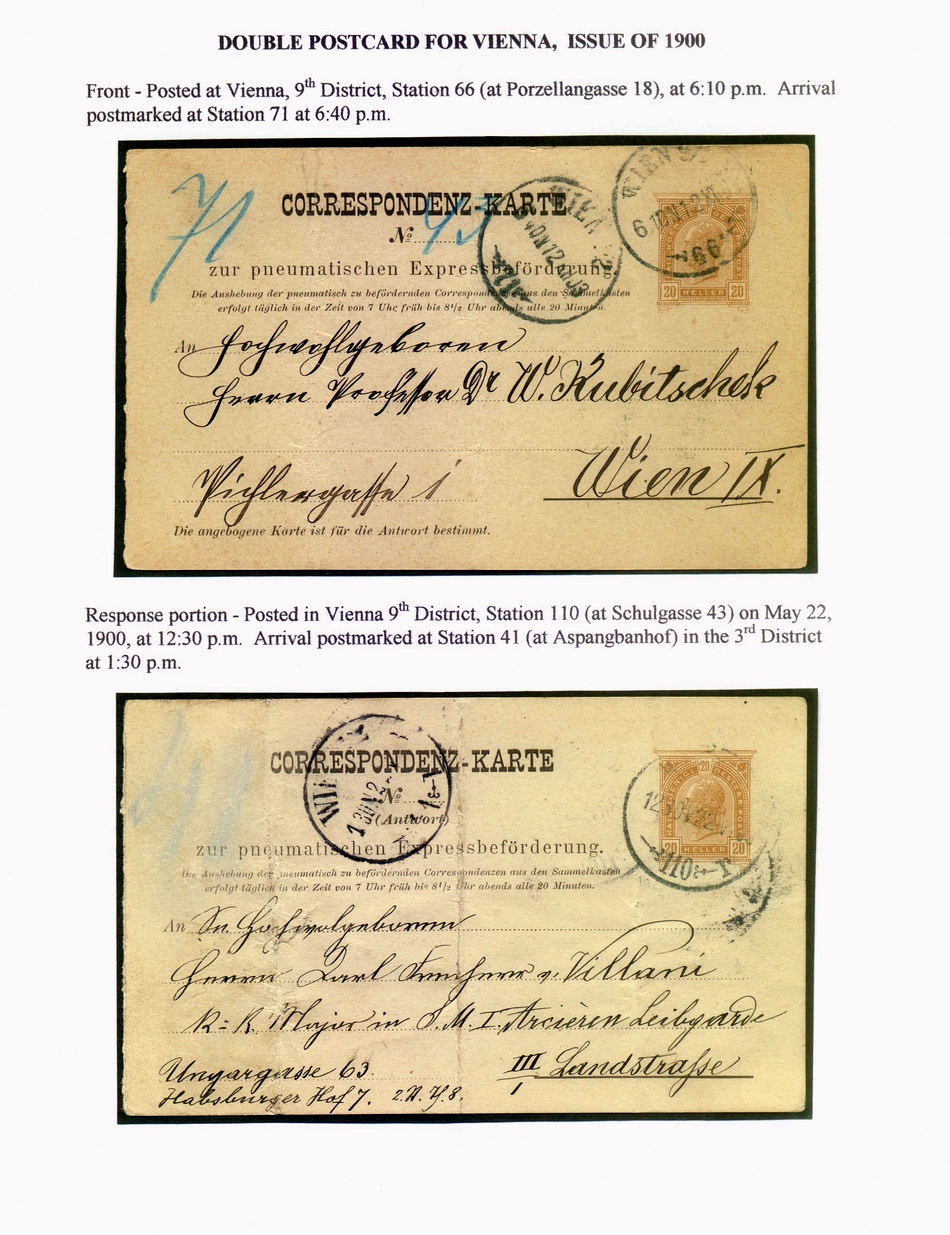 DOUBLE POSTCARD FOR VIENNA, ISSUE OF 1900
Front - Posted at Vienna, 9th District, Station 66 (at Porzellangasse 18), at 6:10 p.m. Arrival
postmarked at Station 71 at 6:40 p.m.
71
CORRESPONDENZ-KARTE
WIEN
WIEN
No
zur pneumatischen Expressbeförderung.
66
71
Die Aushebung der pneumatisch zu befördernden Correspondenzen aus den Sammelkasten
20 HELLER 20
erfolgt täglich in der Zeit von 7 Uhr früh bis 8 1/2 Uhr abends alle 20 Minuten.
An Hochwohlgeboren
Herrn Professor Dr W. Kubitschek
Pichlergasse 1 Wien IX.
Die angebogene Karte ist für die Antwort bestimmt.
Response portion - Posted in Vienna 9th District, Station 110 (at Schulgasse 43) on May 22,
1900, at 12:30 p.m. Arrival postmarked at Station 41 (at Aspangbanhof) in the 3rd District
at 1:30 p.m.
CORRESPONDENZ-KARTE
20
WIE
No
(Antwort)
zur pneumatischen Expressbeförderung.
20 HELLER 20
110
Die Aushebung der pneumatisch zu befördernden Correspondenzen aus den Sammelkasten
erfolgt täglich in der Zeit von 7 Uhr früh bis 8 1/2 Uhr abends alle 20 Minuten.
An Sr. Hochwolgeboren
Herrn Karl Freiherr v. Villani
K. K. Major in S. M. I. Arcieren Leibgarde
Ungargasse 63 III Landstraße
Habsburger Hof 7.